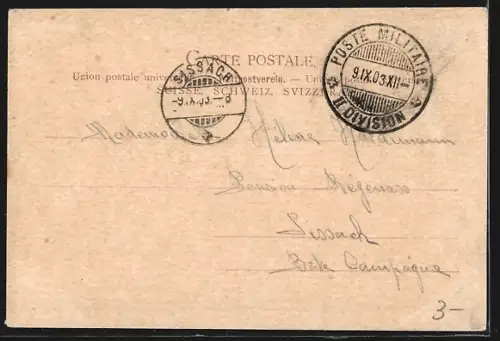 CARTE POSTALE.
Union postale univer postverein. — Un
SUISSE. SCHWEIZ. SVIZZ
SISSACH
-9.IX.03.-8
POSTE MILITAIRE
9.IX.03.XII-
II DIVISION
Mademoi Hélène
Pension
Sissach
Campagne
3-